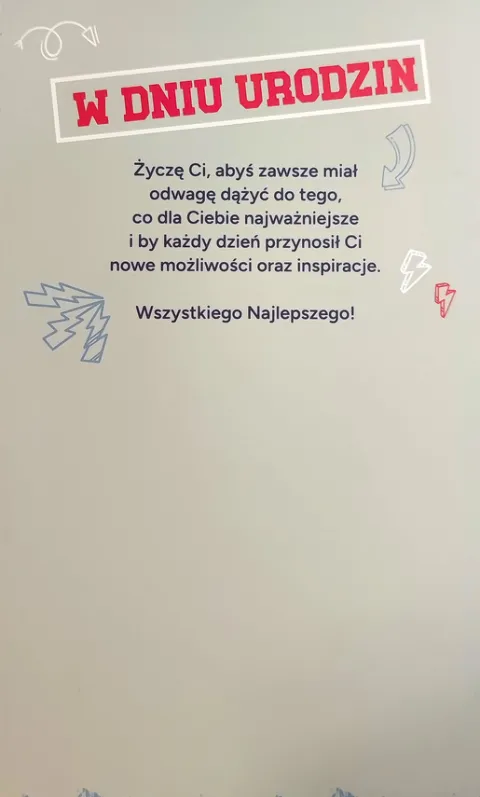 W DNIU URODZIN
Życzę Ci, abyś zawsze miał
odwagę dążyć do tego,
co dla Ciebie najważniejsze
i by każdy dzień przynosił Ci
nowe możliwości oraz inspiracje.
Wszystkiego Najlepszego!